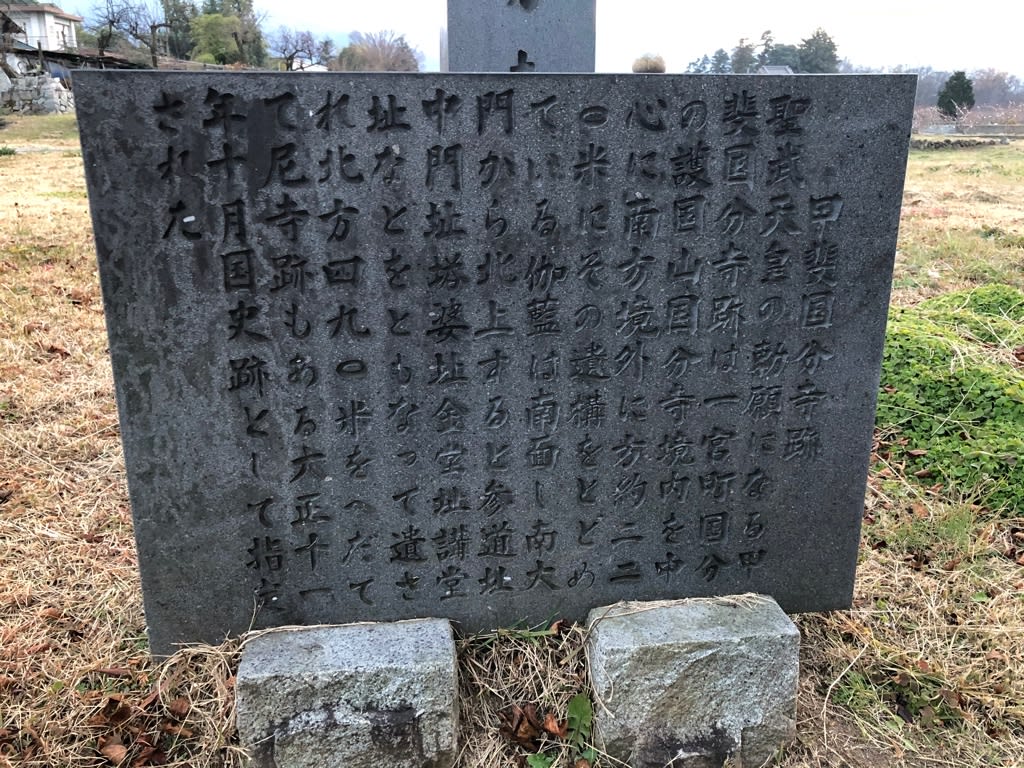 甲斐国分寺跡
聖武天皇の勅願になる甲
斐国分寺跡は一宮町国分
の護国山国分寺境内を中
心に南方境外に方約二二
〇米にその遺構をとどめ
ている伽藍は南面し南大
門から北上すると参道址
中門址塔婆址金堂址講堂
址などをともなって遺さ
れ北方四九〇米をへだて
て尼寺跡もある大正十一
年十月国史跡として指定
された